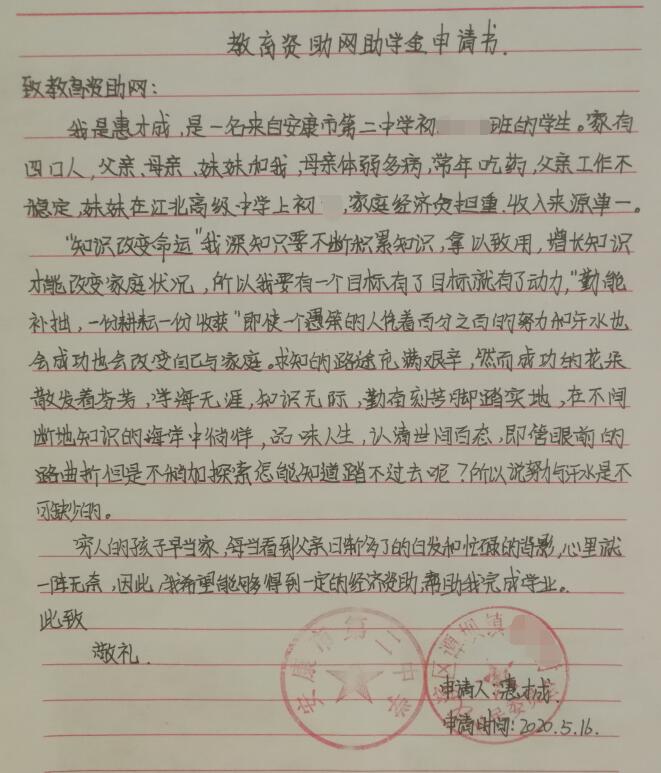 教育资助网助学金申请书.
致教育资助网：
我是惠才成，是一名来自安康市第二中学初 班的学生。家有
四口人，父亲、母亲、妹妹和我，母亲体弱多病，常年吃药，父亲工作不
稳定，妹妹在江北高级中学上初 ，家庭经济负担重，收入来源单一。
“知识改变命运”我深知只要不断积累知识，拿以致用，增长知识
才能改变家庭状况，所以我要有一个目标，有了目标就有了动力，“勤能
补拙，一份耕耘一份收获”即使一个愚笨的人凭着百分之百的努力和汗水也
会成功也会改变自己与家庭。求知的路途充满艰辛，然而成功的花朵
散发着芬芳，学海无涯，知识无际，勤奋刻苦，脚踏实地，在不间
断地知识的海洋中徜徉，品味人生，认清世间百态，即管眼前的
路曲折但是不稍加探索怎能知道踏不过去呢？所以说努力与汗水是不
可缺少的。
穷人的孩子早当家，每当看到父亲日渐多了的白发和忙碌的背影，心里就
一阵无奈，因此，我希望能够得到一定的经济资助，帮助我完成学业。
此致
敬礼.
安康市第二中学
区谭坝镇
民委员会
申请人：惠才成.
申请时间：2020.5.16.